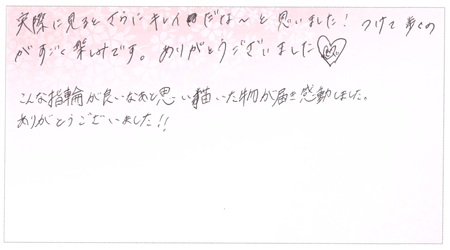 実際に見るとさらにキレイだな〜と思いました！つけて歩くの
がすごく楽しみです。ありがとうございました
こんな指輪が良いなあと思い描いた物が届き感動しました。
ありがとうございました!!